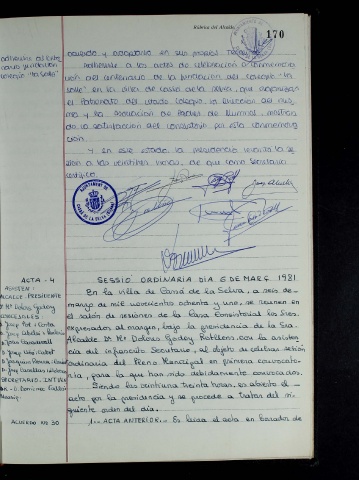 Rúbrica del Alcalde
170
acuerdo y adoptarlo en sus propios
Adherirse a los actos de celebración conmemora
ción del centenario de la fundación del Colegio "La
Salle", en la villa de Cassà de la Selva, que organizan
el Patronato del citado colegio, la Dirección del mis
mo y la Asociación de Padres de Alumnos,
do la satisfacción del consistorio por esta conmemora
ción.
Y en este estado, la presidencia levanta la se
sión a las veintitres horas, de que como Secretario
certifico.
AJUNTAMENT DE
CASSÀ DE LA SELVA (GIRONA)
ACTA - 4
ASISTEN:
ALCALDE-PRESIDENTE
CONCEJALES
SECRETARIO
ACUERDO Nº 30
SESSIÓ ORDINARIA DIA 6 DE MARÇ 1981
En la villa de Cassà de la Selva, a seis de
marzo de mil novecientos ochenta y uno, se reunen en
el salón de sesiones de la Casa Consistorial los Sres.
expresados al margen, bajo la presidencia de la Sra.
Alcalde Dª Mª Dolors Godoy Rotllens, con la asisten
cia del infrascrito Secretario, al objeto de celebrar sesión
ordinaria del Pleno Municipal en primera convocato-
ria, para la que han sido debidamente convocados.
Siendo las veintiuna treinta horas, es abierto el
acto por la presidencia y se procede a tratar del si-
guiente orden del día.
1.- ACTA ANTERIOR.- Es leida el acta en borrador de